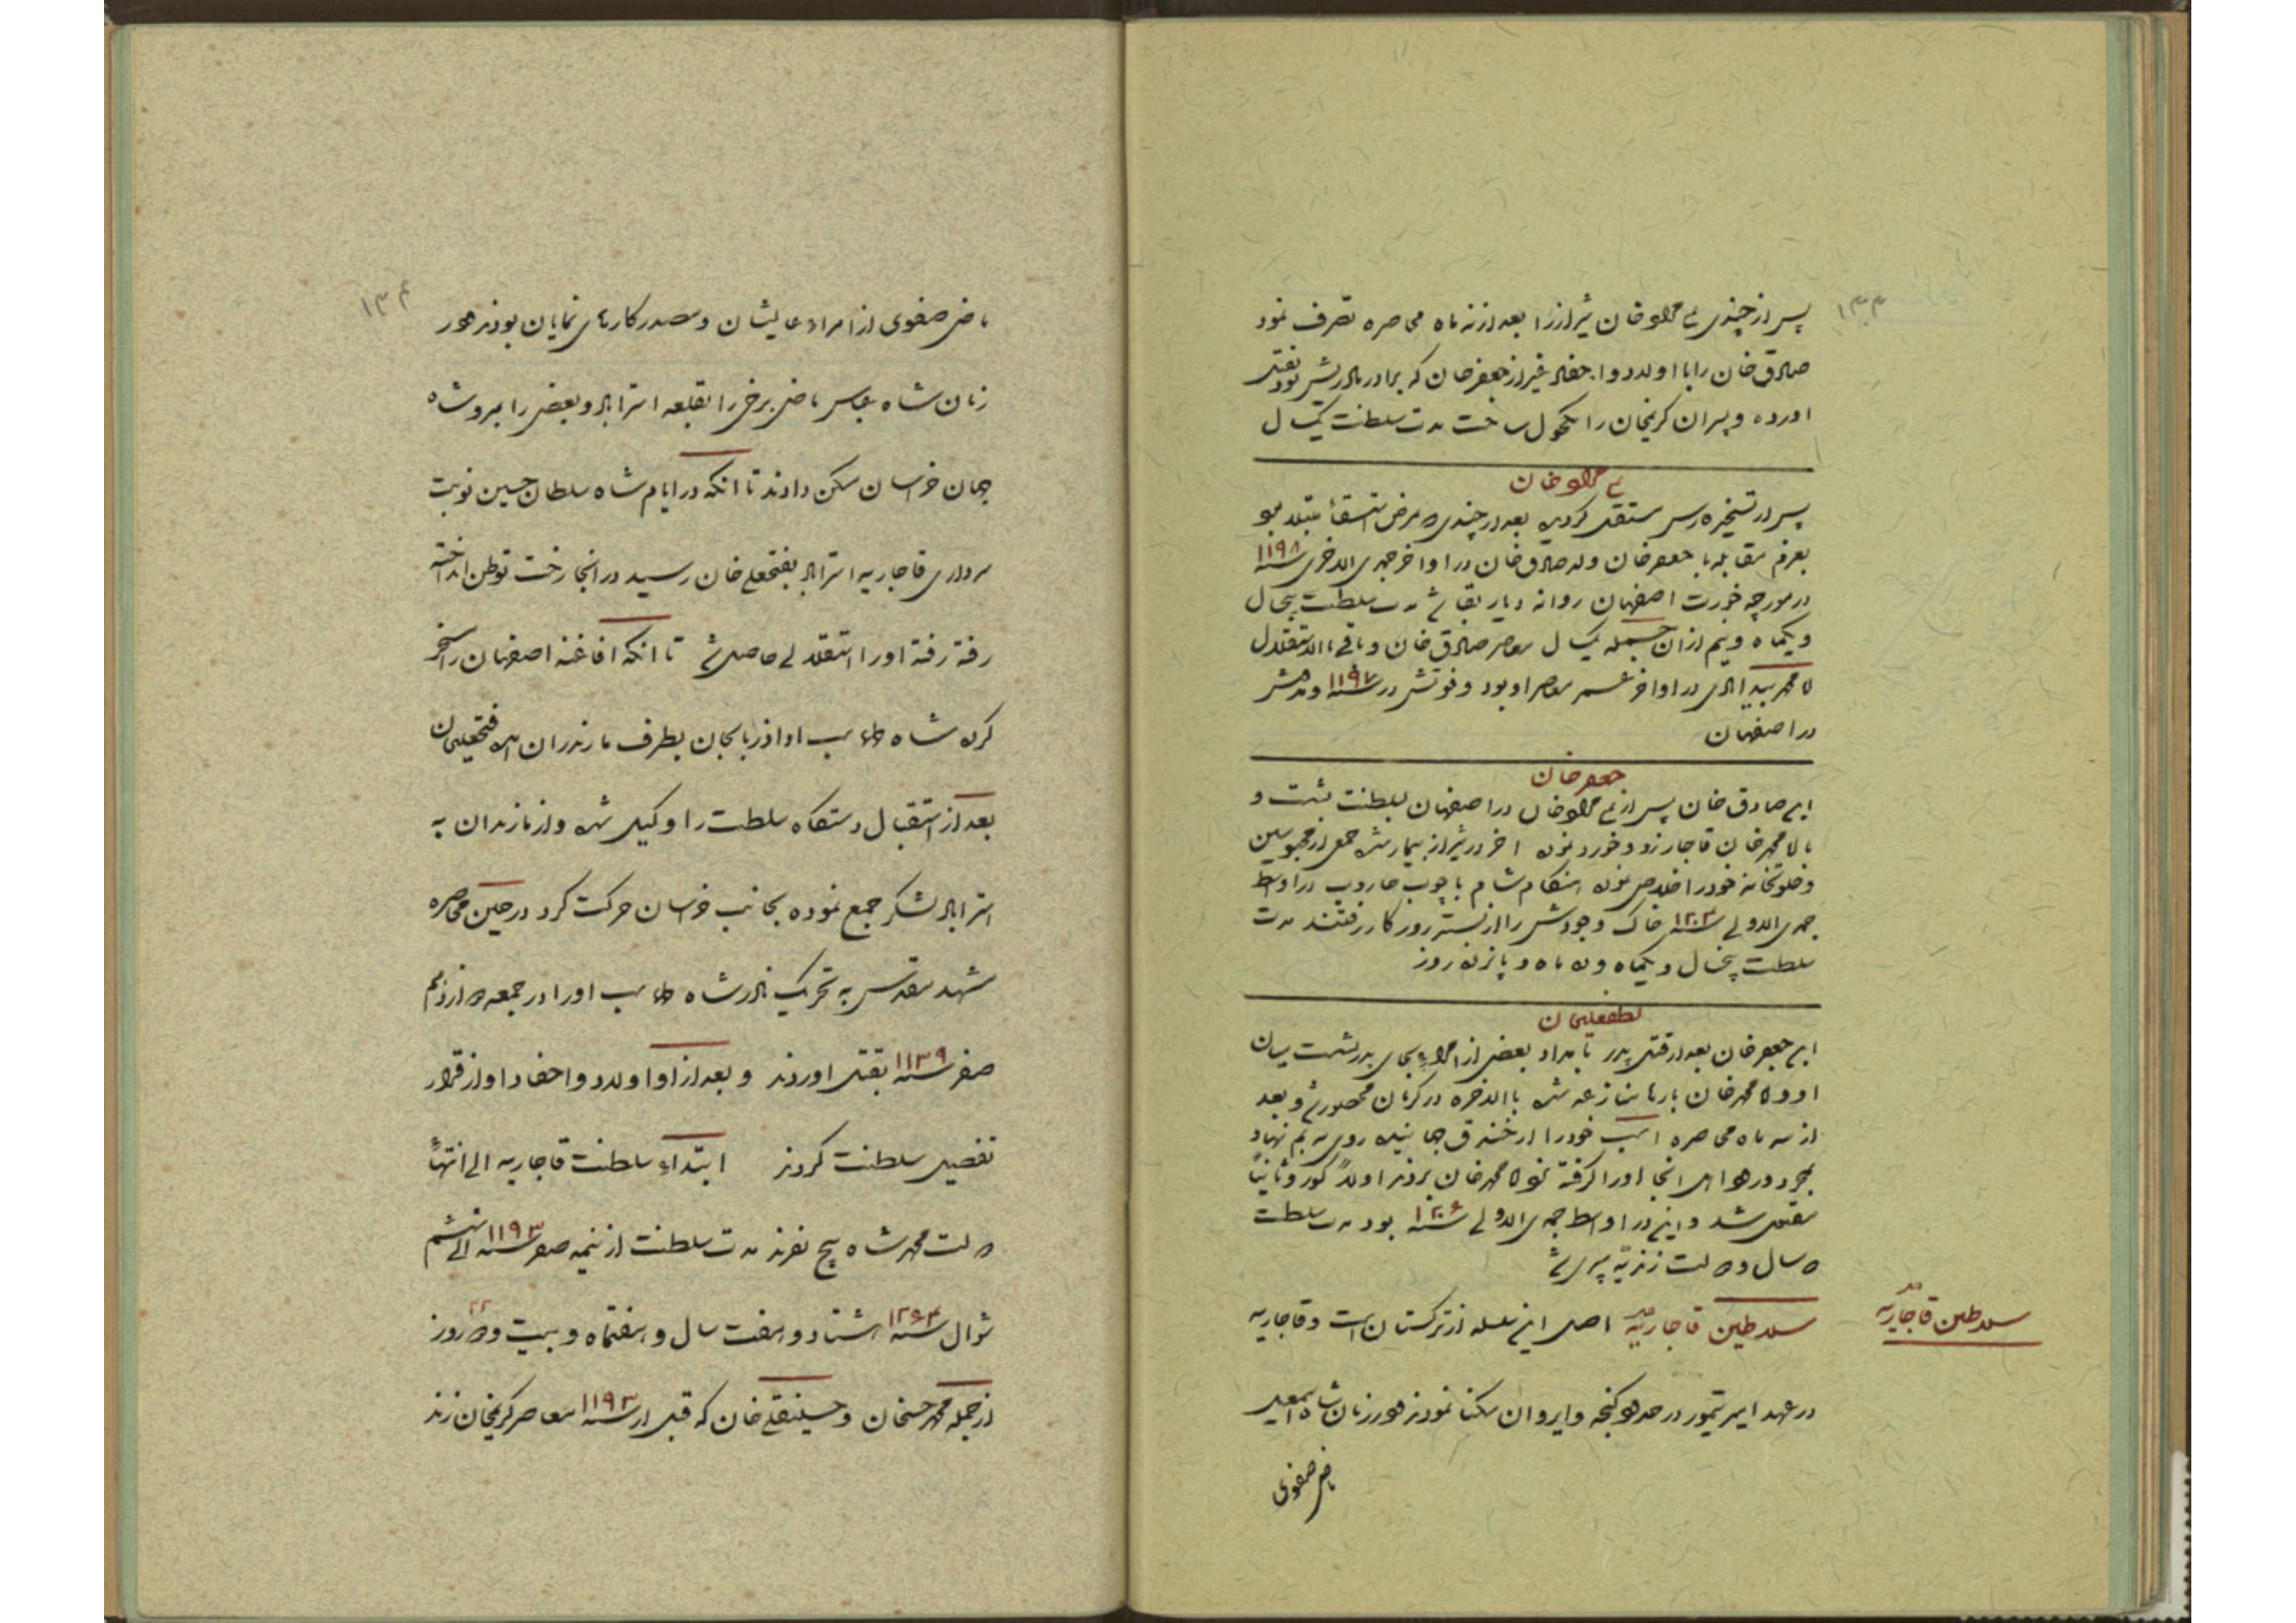 پس از چندی علیمراد خان شیراز را بعد از نه ماه محاصره تصرف نمود
صادق خان را با اولاد و احفاد غیر از جعفر خان که برادر مادریش بود بقتل
اورده و پسران کریمخان را مکحول ساخت مدت سلطنت یکسال
علیمراد خان
پس در تسخیر فارس مستقل کردید بعد از چندی مرض استسقا مبتلا
بعزم مقابله با جعفر خان ولد صادق خان در اواخر جمادی الاخری سنه ١١٩٨
در مورچه خورت اصفهان روانه دیار بقا شد مدت سلطنت پنجسال
و یکماه و نیم از ان جمله یک سال معاصر صادق خان و باقی بالاستقلال
در اواخر عمر معاصر او بود و فوتش در سنه ١١٩٧ و مدفنش
در اصفهان
جعفر خان
ابن صادق خان پس از علیمراد خان در اصفهان بسلطنت نشست و
با اقا محمد خان قاجار زد و خورد نموده اخر در شیراز بیمار شده جمعی از محبوسین
خود را خلاص نموده هنگام شام با چوب جاروب در اواسط
جمادی الاولی سنه ١٢٠٣ خاک وجودش را از بستر روزکار رفتند مدت
سلطنت پنجسال و یکماه و ده ماه و پانزده روز
لطفعلیخان
ابن جعفر خان بعد از قتل پدر بامداد بعضی از امراء بجای پدر نشست میان
او و اقا محمد خان بارها منازعه شده بالاخره در کرمان محصور شد و بعد
از سه ماه محاصره اسب خود را از خندق جهانیده روی به بم نهاد
بمجرد ورود اهل انجا او را کرفته نزد اقا محمد خان بردند اولاً کور و ثانیاً
مقتول شد و این در اواسط جمادی الاولی سنه ١٢٠٩ بود مدت سلطنت
سال و دولت زندیه سپری شد
سلاطین قاجاریه
سلاطین قاجاریه اصل این سلسله از ترکستان است و قاجاریه
در عهد امیر تیمور در حدود کنجه و ایروان سکنا نمودند و در زمان شاه اسمعیل
ماضی صفوی
ماضی صفوی از امراء عالیشان و مصدر کارهای نمایان بودند و در
زمان شاه عباس ماضی برخی را بقلعه استراباد و بعضی را بمرو شاه
جهان خراسان مسکن دادند تا انکه در ایام شاه سلطان حسین نوبت
سرداری قاجاریه استراباد بفتحعلی خان رسید در انجا رخت توطن انداخته
رفته رفته او را استقلالی حاصل شد تا انکه افاغنه اصفهان را مسخر
کرده شاه طهماسب از اذربایجان بطرف مازندران امده فتحعلیخان
بعد از استقبال دستکاه سلطنت را وکیل شده و از مازندران به
استراباد لشکر جمع نموده بجانب خراسان حرکت کرد در حین محاصره
مشهد مقدس به تحریک نادر شاه طهماسب او را در جمعه دوازدهم
صفر سنه ١١٣٩ بقتل اوردند و بعد از او اولاد و احفاد او از قرار
تفصیل سلطنت کردند ابتداء سلطنت قاجاریه الی انتهاء
دولت محمد شاه پنج نفرند مدت سلطنت از نیمه صفر سنه ١١٩٣ الی ششم
شوال سنه ١٢٦٤ هشتاد و هفت سال و هفتماه و بیست و دو روز
از جمله محمد حسنخان و حسینقلی خان که قبل از سنه ١١٩٣ معاصر کریمخان زند